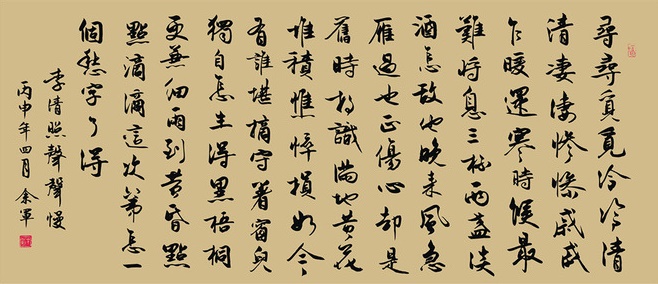 尋尋覓覓冷冷清
清凄凄慘慘戚戚
乍暖還寒時候最
難將息三杯兩盞淡
酒怎敵他晚來風急
雁過也正傷心却是
舊時相識滿地黄花
堆積憔悴損如今
有誰堪摘守著窗兒
獨自怎生得黑梧桐
更兼細雨到黄昏點
點滴滴這次第怎一
個愁字了得
李清照聲聲慢
丙申年四月余軍